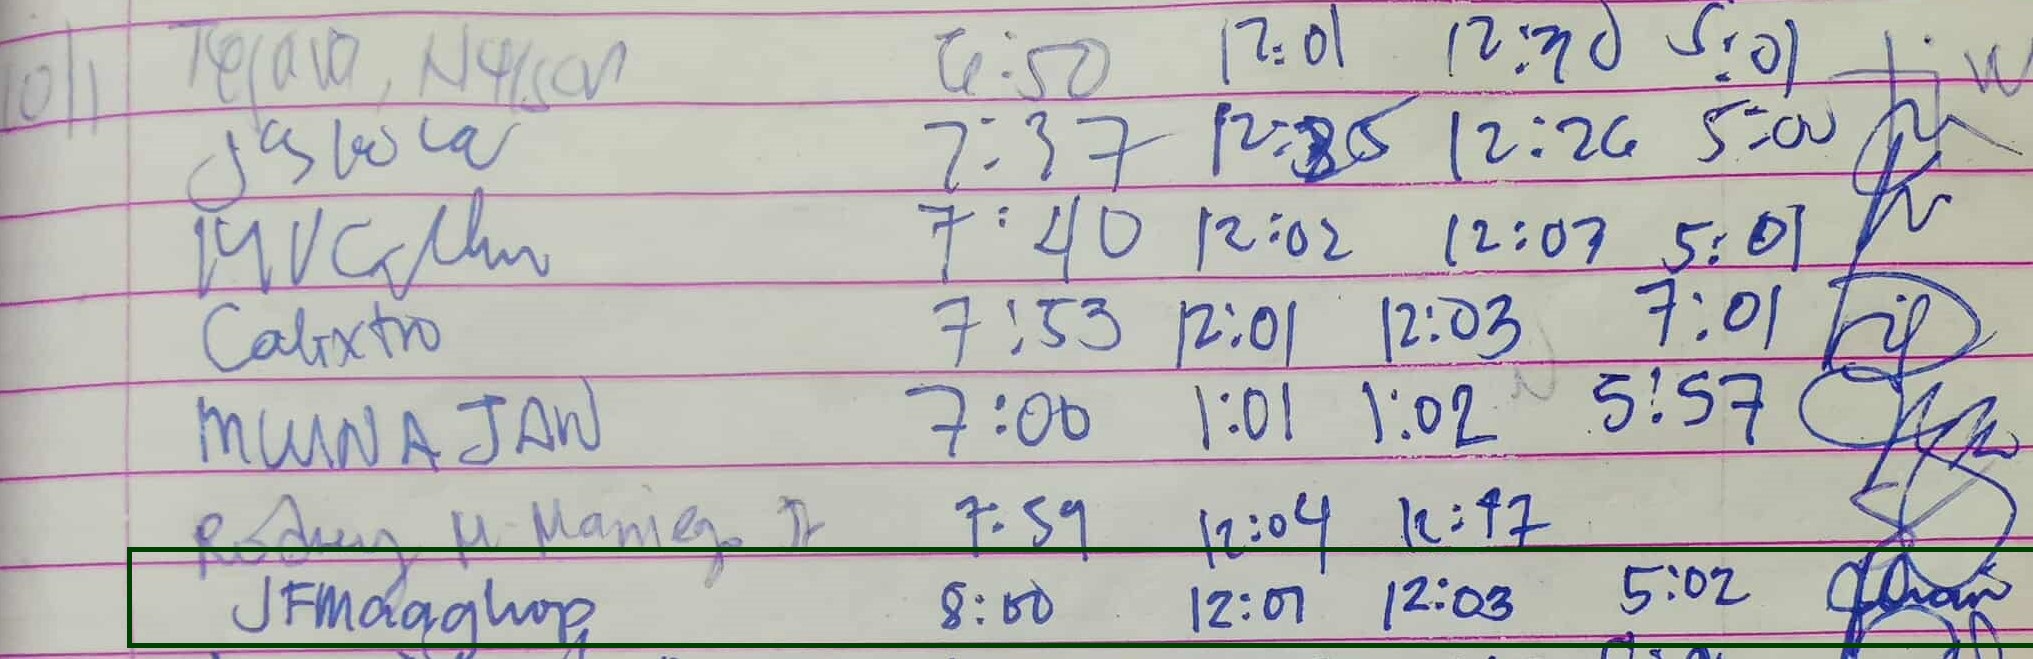 10/1 Tejava, Nelson 6:50 12:01 12:30 5:01
7:37 12:25 12:26 5:00
7:40 12:02 12:07 5:01
Calixtro 7:53 12:01 12:03 7:01
MUNAJAN 7:00 1:01 1:02 5:57
Rodney M. Maniego Jr 7:59 12:04 12:47
JFMagghop 8:00 12:01 12:03 5:02